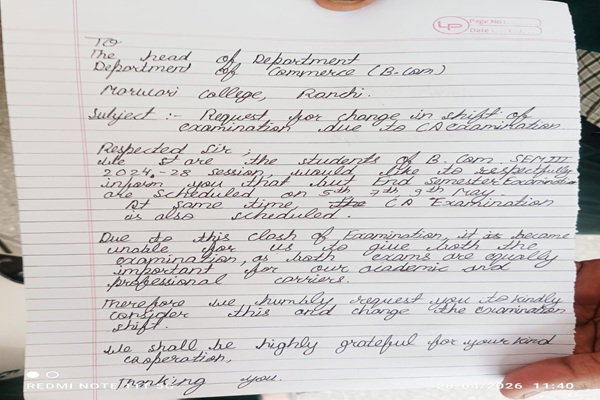 LP Page No.:
Date:
TO
The head of Department
Department of Commerce (B-Com)
Marwari College, Ranchi.
Subject :- Request for change in shift of
examination due to CA examination.
Respected Sir,
we are the students of B. Com. SEM III
2024-28 session, would like to respectfully
inform you that but end Semester Examination
are scheduled on 5th 7th 9th May.
At same time, CA Examination
is also scheduled.
Due to this clash of Examination, it is became
unable for us to give both the
examination, as both exams are equally
important for our academic and
professional carriers.
Therefore we humbly request you to kindly
consider this and change the examination
shift.
we shall be highly grateful for your kind
cooperation,
Thanking you.
REDMI NOTE 11T 5G 28/04/2026 11:40